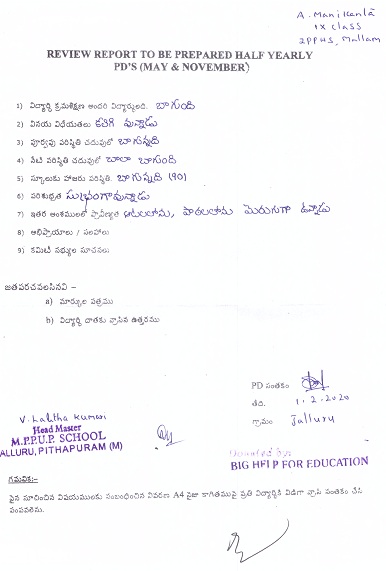 A. Manikanta
IX class
ZPPHS, Mallam
REVIEW REPORT TO BE PREPARED HALF YEARLY
PD'S (MAY & NOVEMBER)
1) విద్యార్థి క్రమశిక్షణ అందరి విద్యార్థులది. బాగుంది
2) వినయ విధేయతలు కలిగి వున్నాడు
3) పూర్వపు పరిస్థితి చదువులో బాగున్నది
4) నేటి పరిస్థితి చదువులో చాలా బాగుంది
5) స్కూలుకు హాజరు పరిస్థితి. బాగున్నది (90)
6) పరిశుభ్రత సుభ్రంగావున్నాడు
7) ఇతర అంశములలో ప్రావీణ్యత ఆటలలోను, పాటలలోను మెరుగుగా ఉన్నాడు
8) అభిప్రాయాలు / సలహాలు
9) కమిటీ సభ్యుల సూచనలు
జతపరచవలసినవి –
a) మార్కుల పత్రము
b) విద్యార్థి దాతకు వ్రాసిన ఉత్తరము
PD సంతకం
తేది. 1.2.2020
గ్రామం Jalluru
V. Lalitha Kumari
Head Master
M.P.P.U.P. SCHOOL
ALLURU, PITHAPURAM (M)
Donated by:
BIG HELP FOR EDUCATION
గమనిక:–
పైన సూచించిన విషయములకు సంబంధించిన వివరణ A4 సైజు కాగితముపై ప్రతి విద్యార్థికి విడిగా వ్రాసి సంతకం చేసి
పంపవలెను.